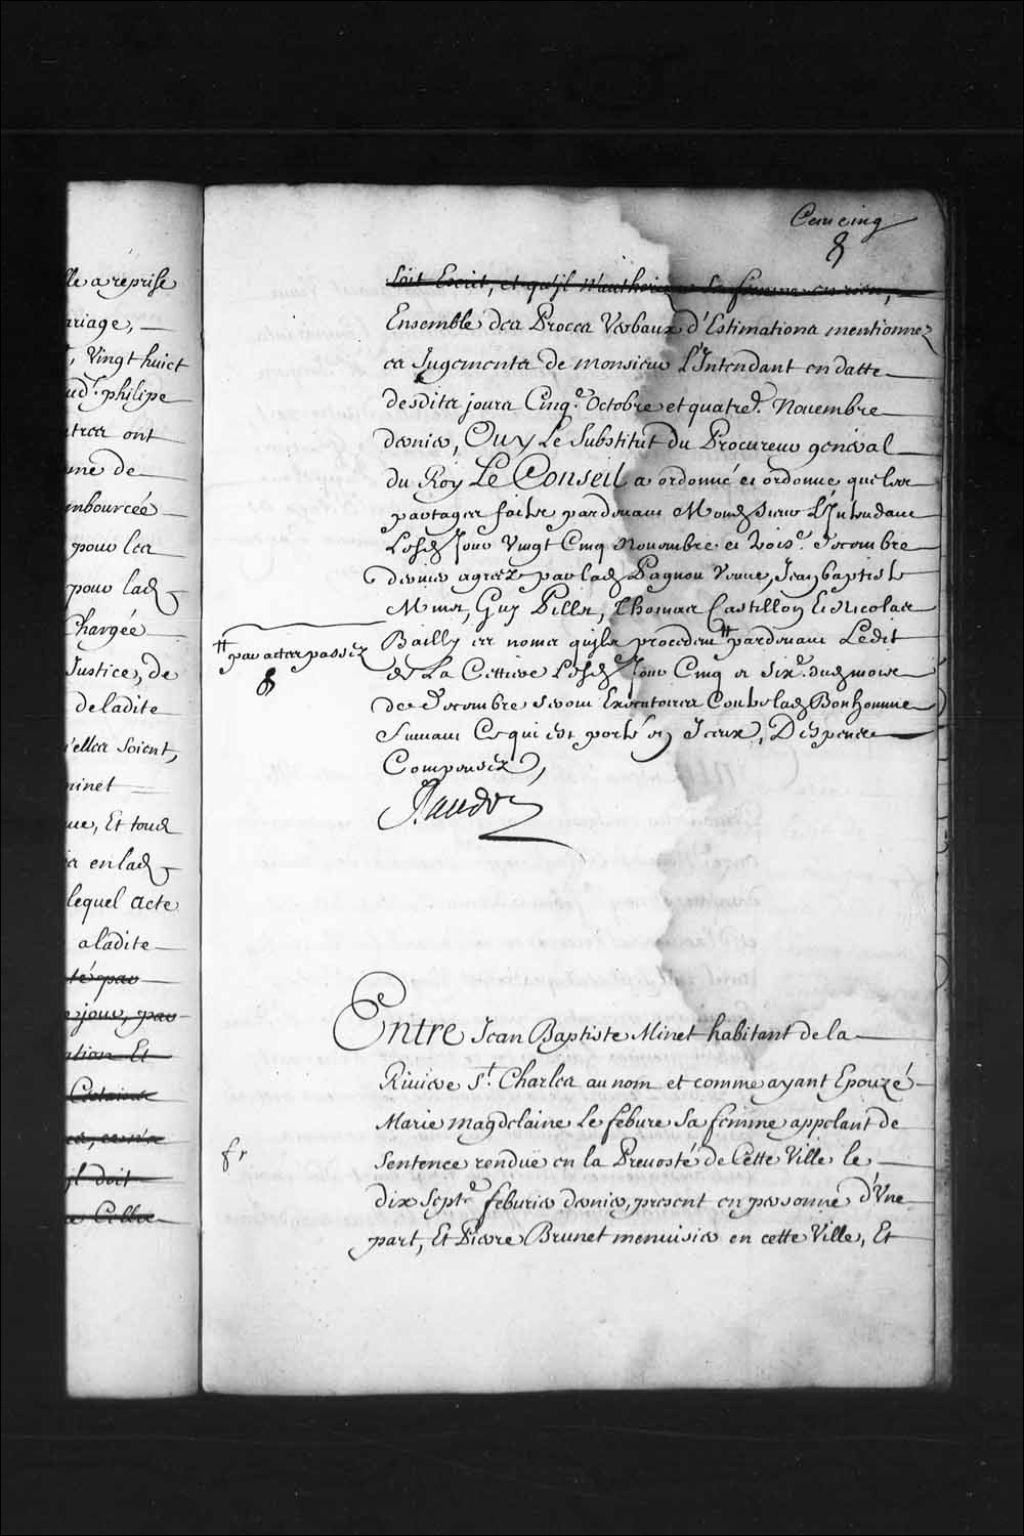 Cent cinq
lle a reprise
ariage,
, Vingt huict
ud.t philipe
utres ont
une de
mbourcée
pour les
pour lad.
Chargée
Justice, de
deladite
'elles soient,
minet
ue, Et tous
es en lad.
lequel acte
aladite
té par
jour, par
ation Et
il doit
soit Escrit, et qu'jl N'authorise sa femme en rien,
Ensemble des Proces Verbaux d'Estimations mentionnez
es Jugements de monsieur L'Intendant en datte
desdits jours Cinq.e Octobre et quatre.e Novembre
dernier, Ouy Le Substitut du Procureur general
du Roy Le Conseil a ordonné et ordonne que les
partages faits pardevant Monsieur L'Intendant
Lesd. Jour Vingt Cinq Novembre et trois.e Decembre
dernier agréez par lad. Pagnou Veuve, Jean baptiste
Minet, Guy Pilles, Thomas Castillon Et Nicolas
Bailly es noms qu'ils procedent # pardevant Ledit
# par actes passez
de La Cettiere Lesd. Jour Cinq et six.e dud. mois
de Decembre seront Executoires Contre lad. Bonhomme
Suivant Ce qui est porté en Iceux, Despence
Compensez,
Entre Jean Baptiste Minet habitant de la
Riviere S.t Charles au nom et comme ayant Epouzé
Marie magdelaine Le febure sa femme appelant de
fr
Sentence rendue en la Prevosté de Cette Ville le
dix Sept.e feburier dernier, present en personne d'Une
part, Et Pierre Brunet menuisier en cette Ville, Et